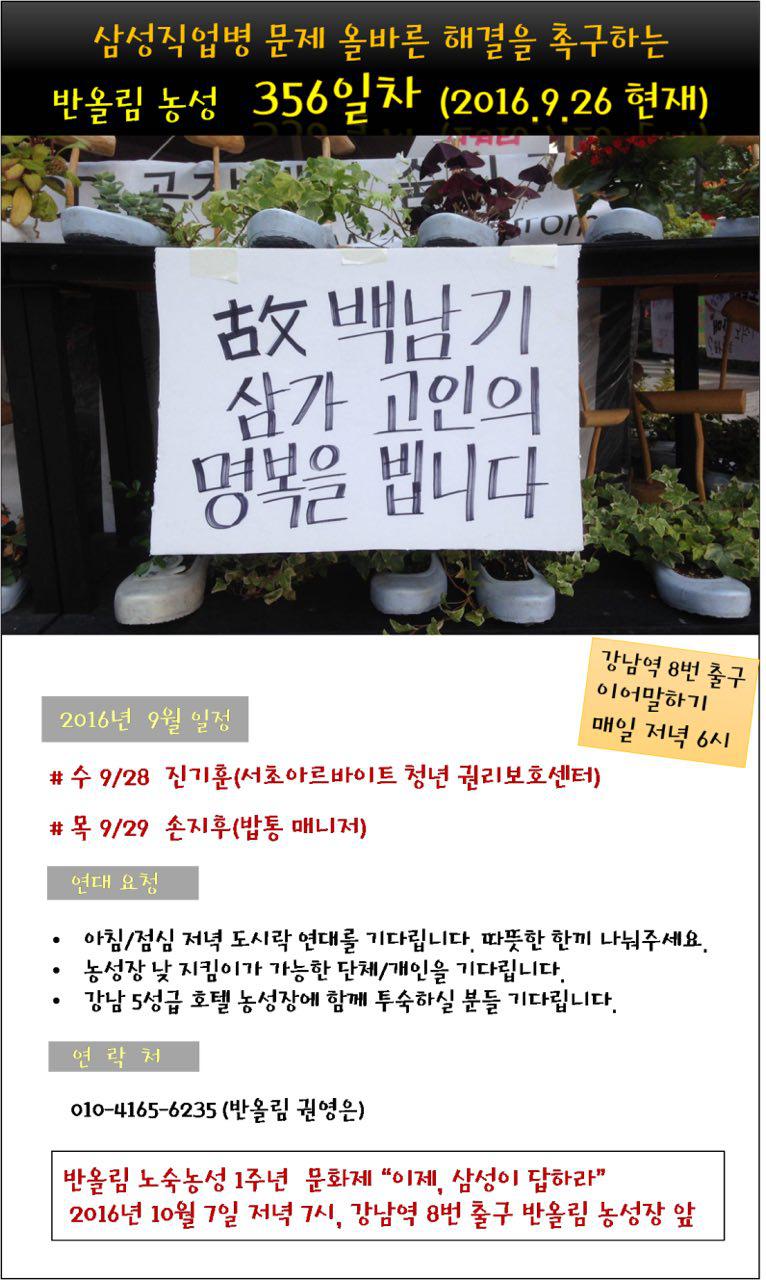 삼성직업병 문제 올바른 해결을 촉구하는
반올림 농성 356일차 (2016.9.26 현재)
故 백남기
삼가 고인의
명복을 빕니다
강남역 8번 출구
이어말하기
매일 저녁 6시
2016년 9월 일정
# 수 9/28 진기훈(서초아르바이트 청년 권리보호센터)
# 목 9/29 손지후(밥통 매니저)
연대 요청
• 아침/점심 저녁 도시락 연대를 기다립니다. 따뜻한 한끼 나눠주세요.
• 농성장 낮 지킴이가 가능한 단체/개인을 기다립니다.
• 강남 5성급 호텔 농성장에 함께 투숙하실 분들 기다립니다.
연 락 처
010-4165-6235 (반올림 권영은)
반올림 노숙농성 1주년 문화제 “이제, 삼성이 답하라”
2016년 10월 7일 저녁 7시, 강남역 8번 출구 반올림 농성장 앞